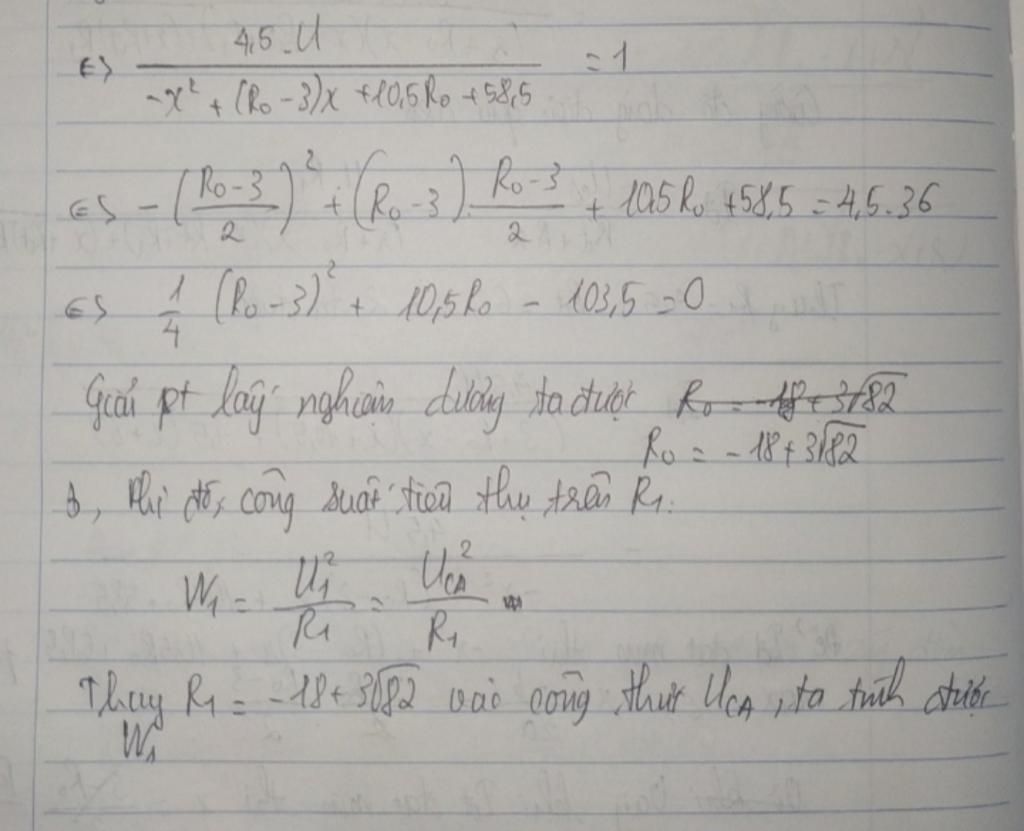 ⇔ 4,5.U / (-x² + (R₀-3)x + 10,5R₀ + 58,5) = 1
⇔ -((R₀-3)/2)² + (R₀-3).(R₀-3)/2 + 10,5R₀ + 58,5 = 4,5.36
⇔ 1/4 (R₀-3)² + 10,5R₀ - 103,5 = 0
Giải pt lấy nghiệm dương ta được R₀ = -18 + 3√82
R₀ = -18 + 3√82
b, Khi đó, công suất tiêu thụ trên R₁:
W₁ = U₁²/R₁ = U_CA²/R₁
Thay R₁ = -18 + 3√82 vào công thức U_CA, ta tính được
W₁